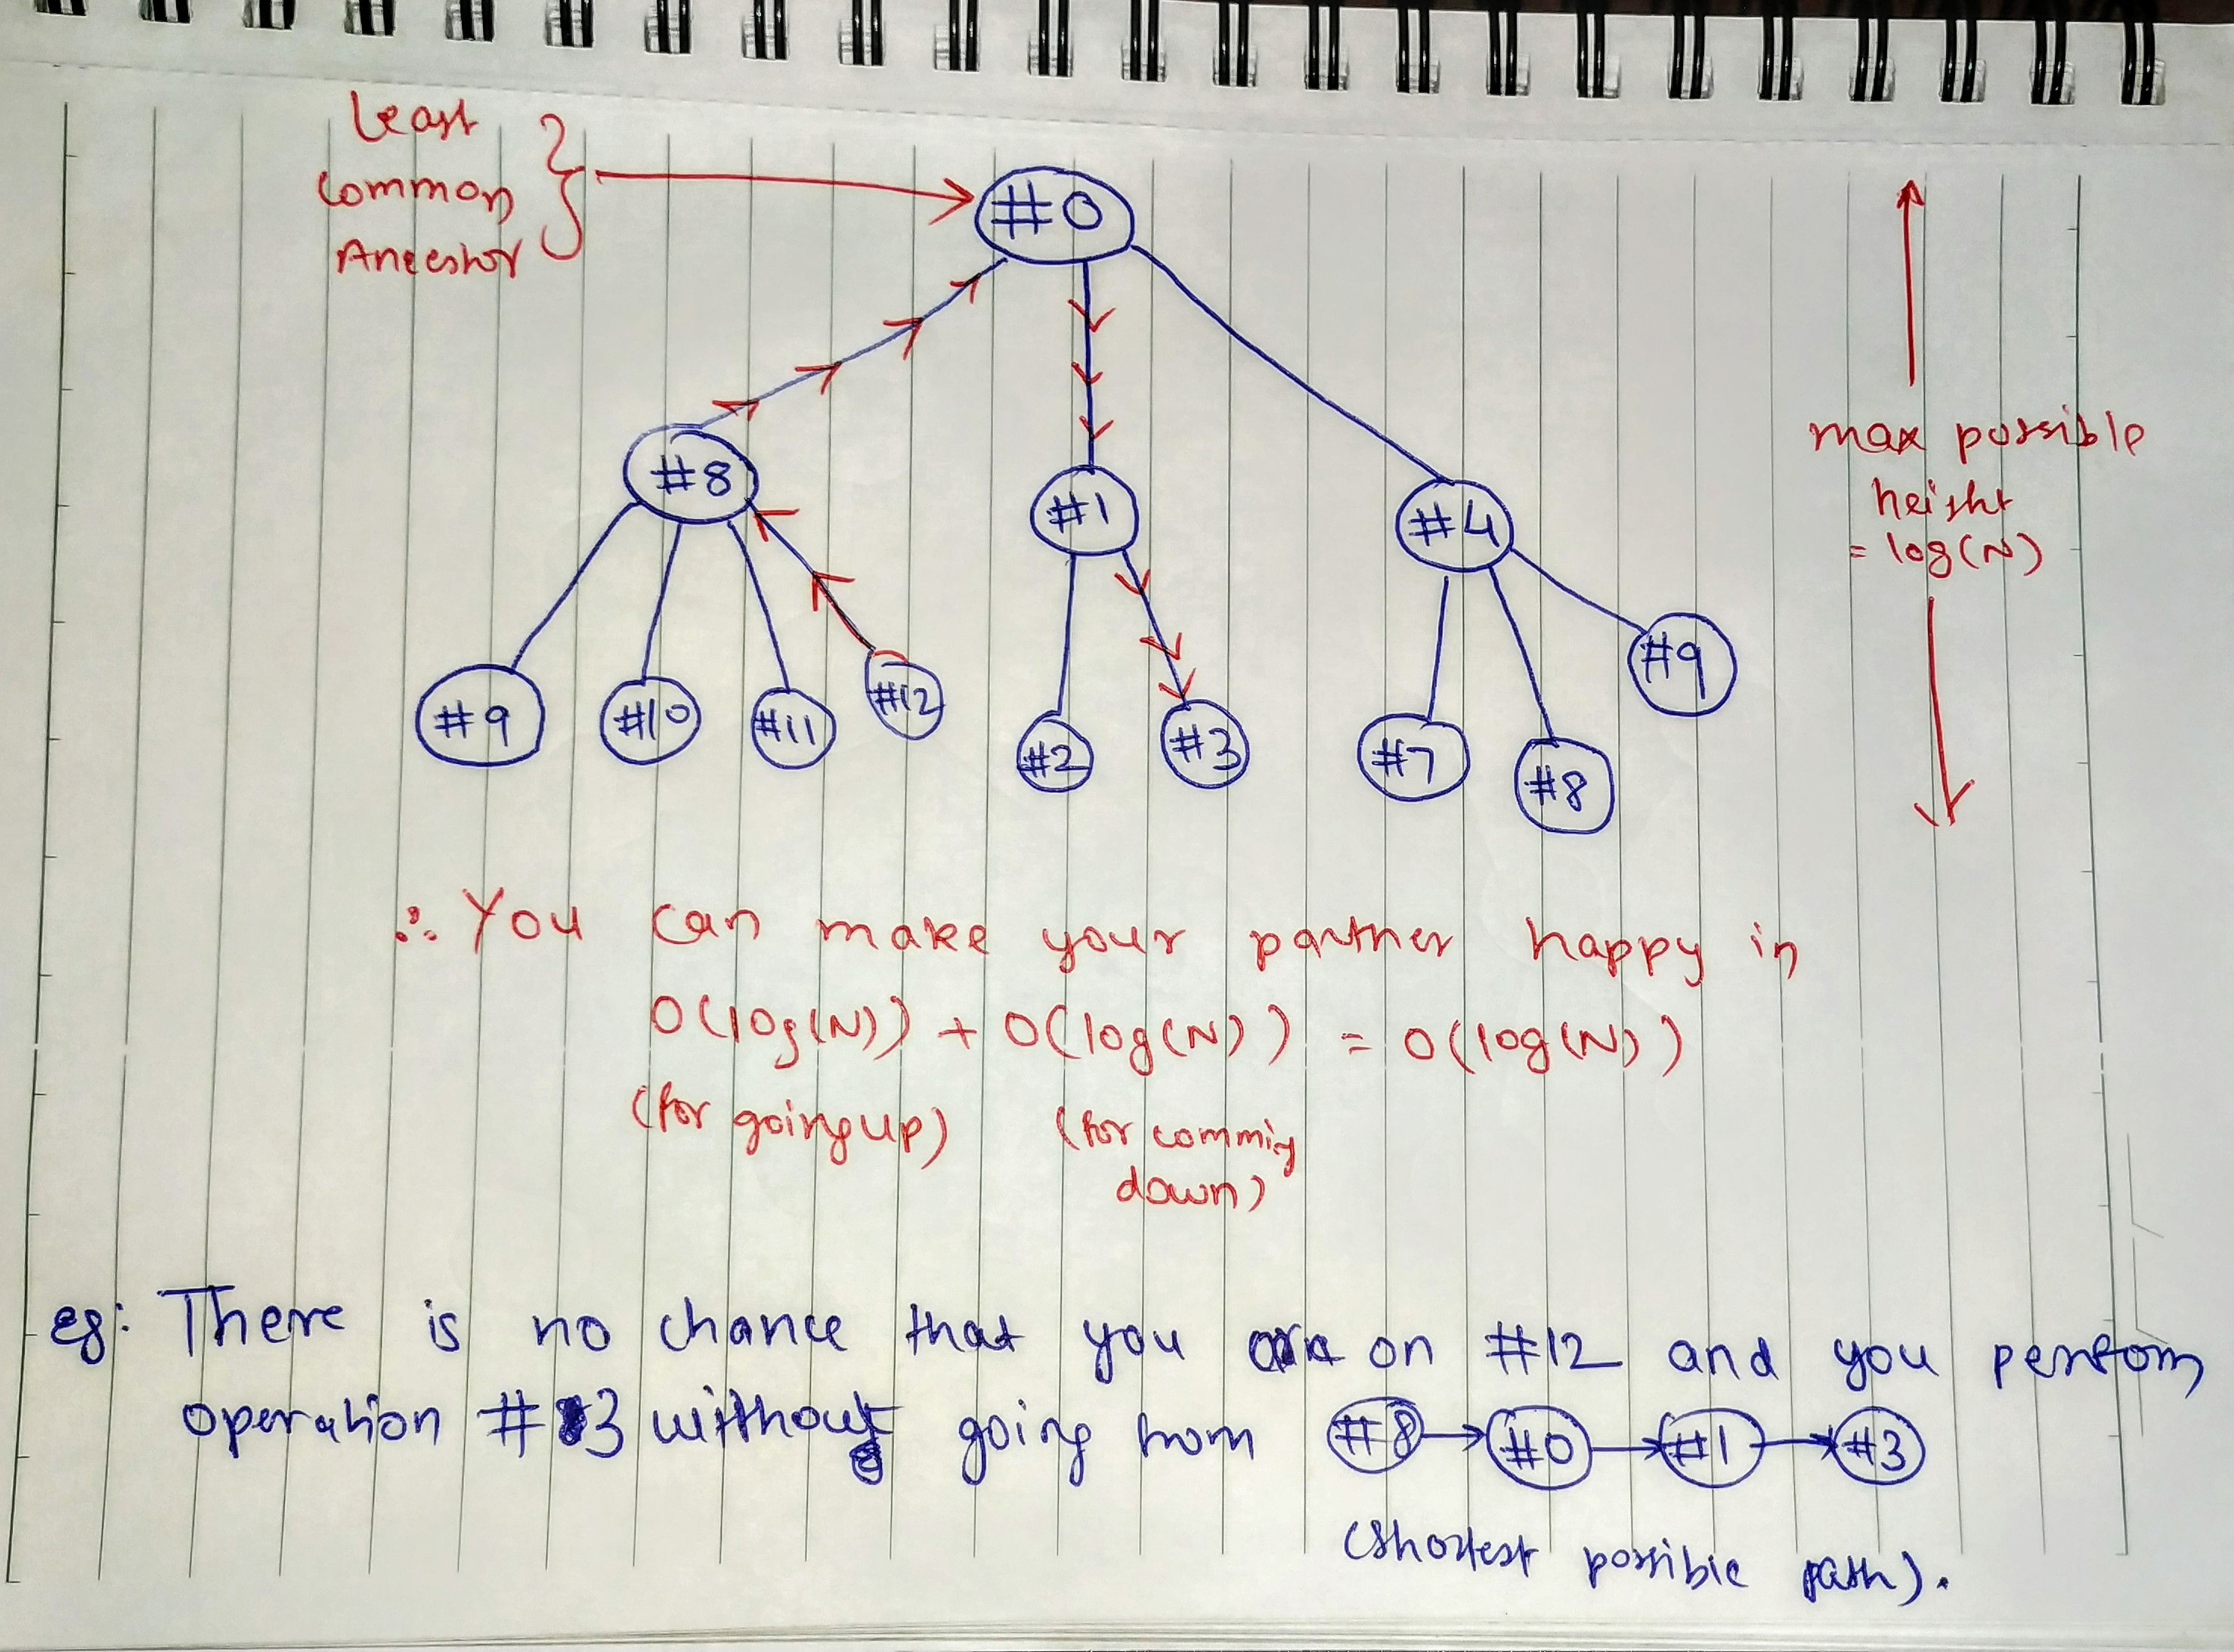 Least
Common
Ancestor
#0
max possible
height
= log(N)
#8
#1
#4
#9
#10
#11
#12
#2
#3
#7
#8
#9
∴ You can make your partner happy in
O(log(N)) + O(log(N)) = O(log(N))
(for going up) (for comming
down)
eg: There is no chance that you are on #12 and you perform
operation #3 without going from #8 → #0 → #1 → #3
(shortest possible path).